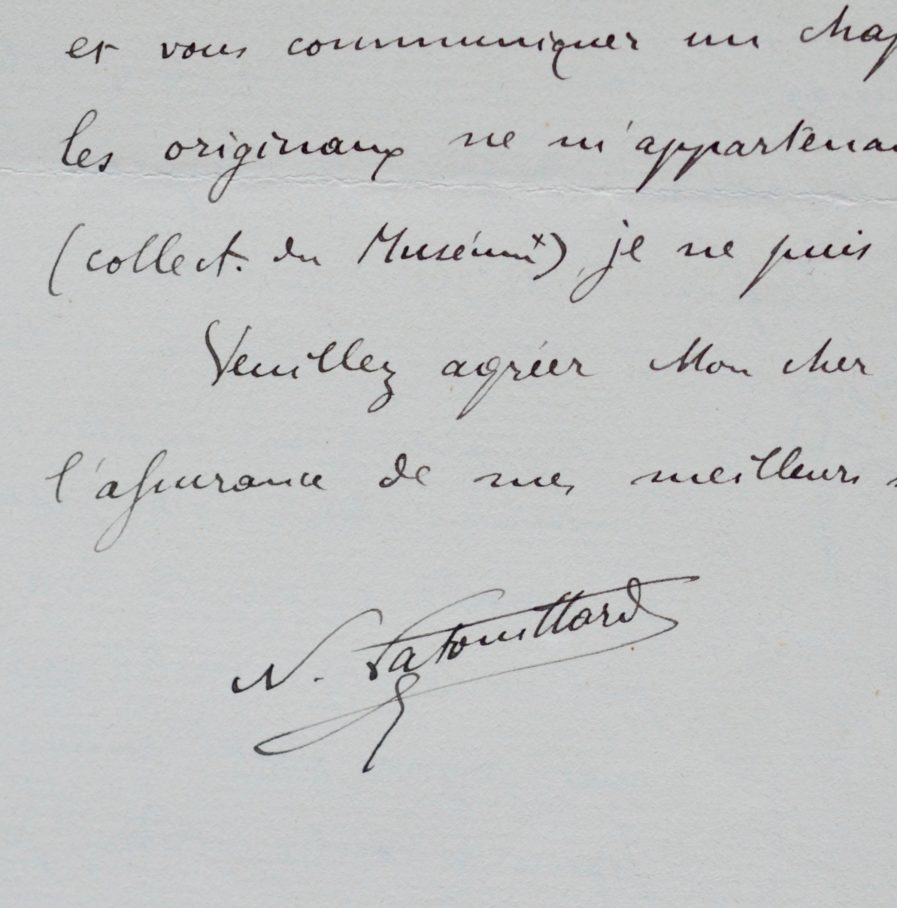 et vous communiquer un chap
les originaux ne m'appartenan
(collect. du Muséum x) je ne puis
Veuillez agréer Mon cher
l'assurance de mes meilleurs
N. Patouillard